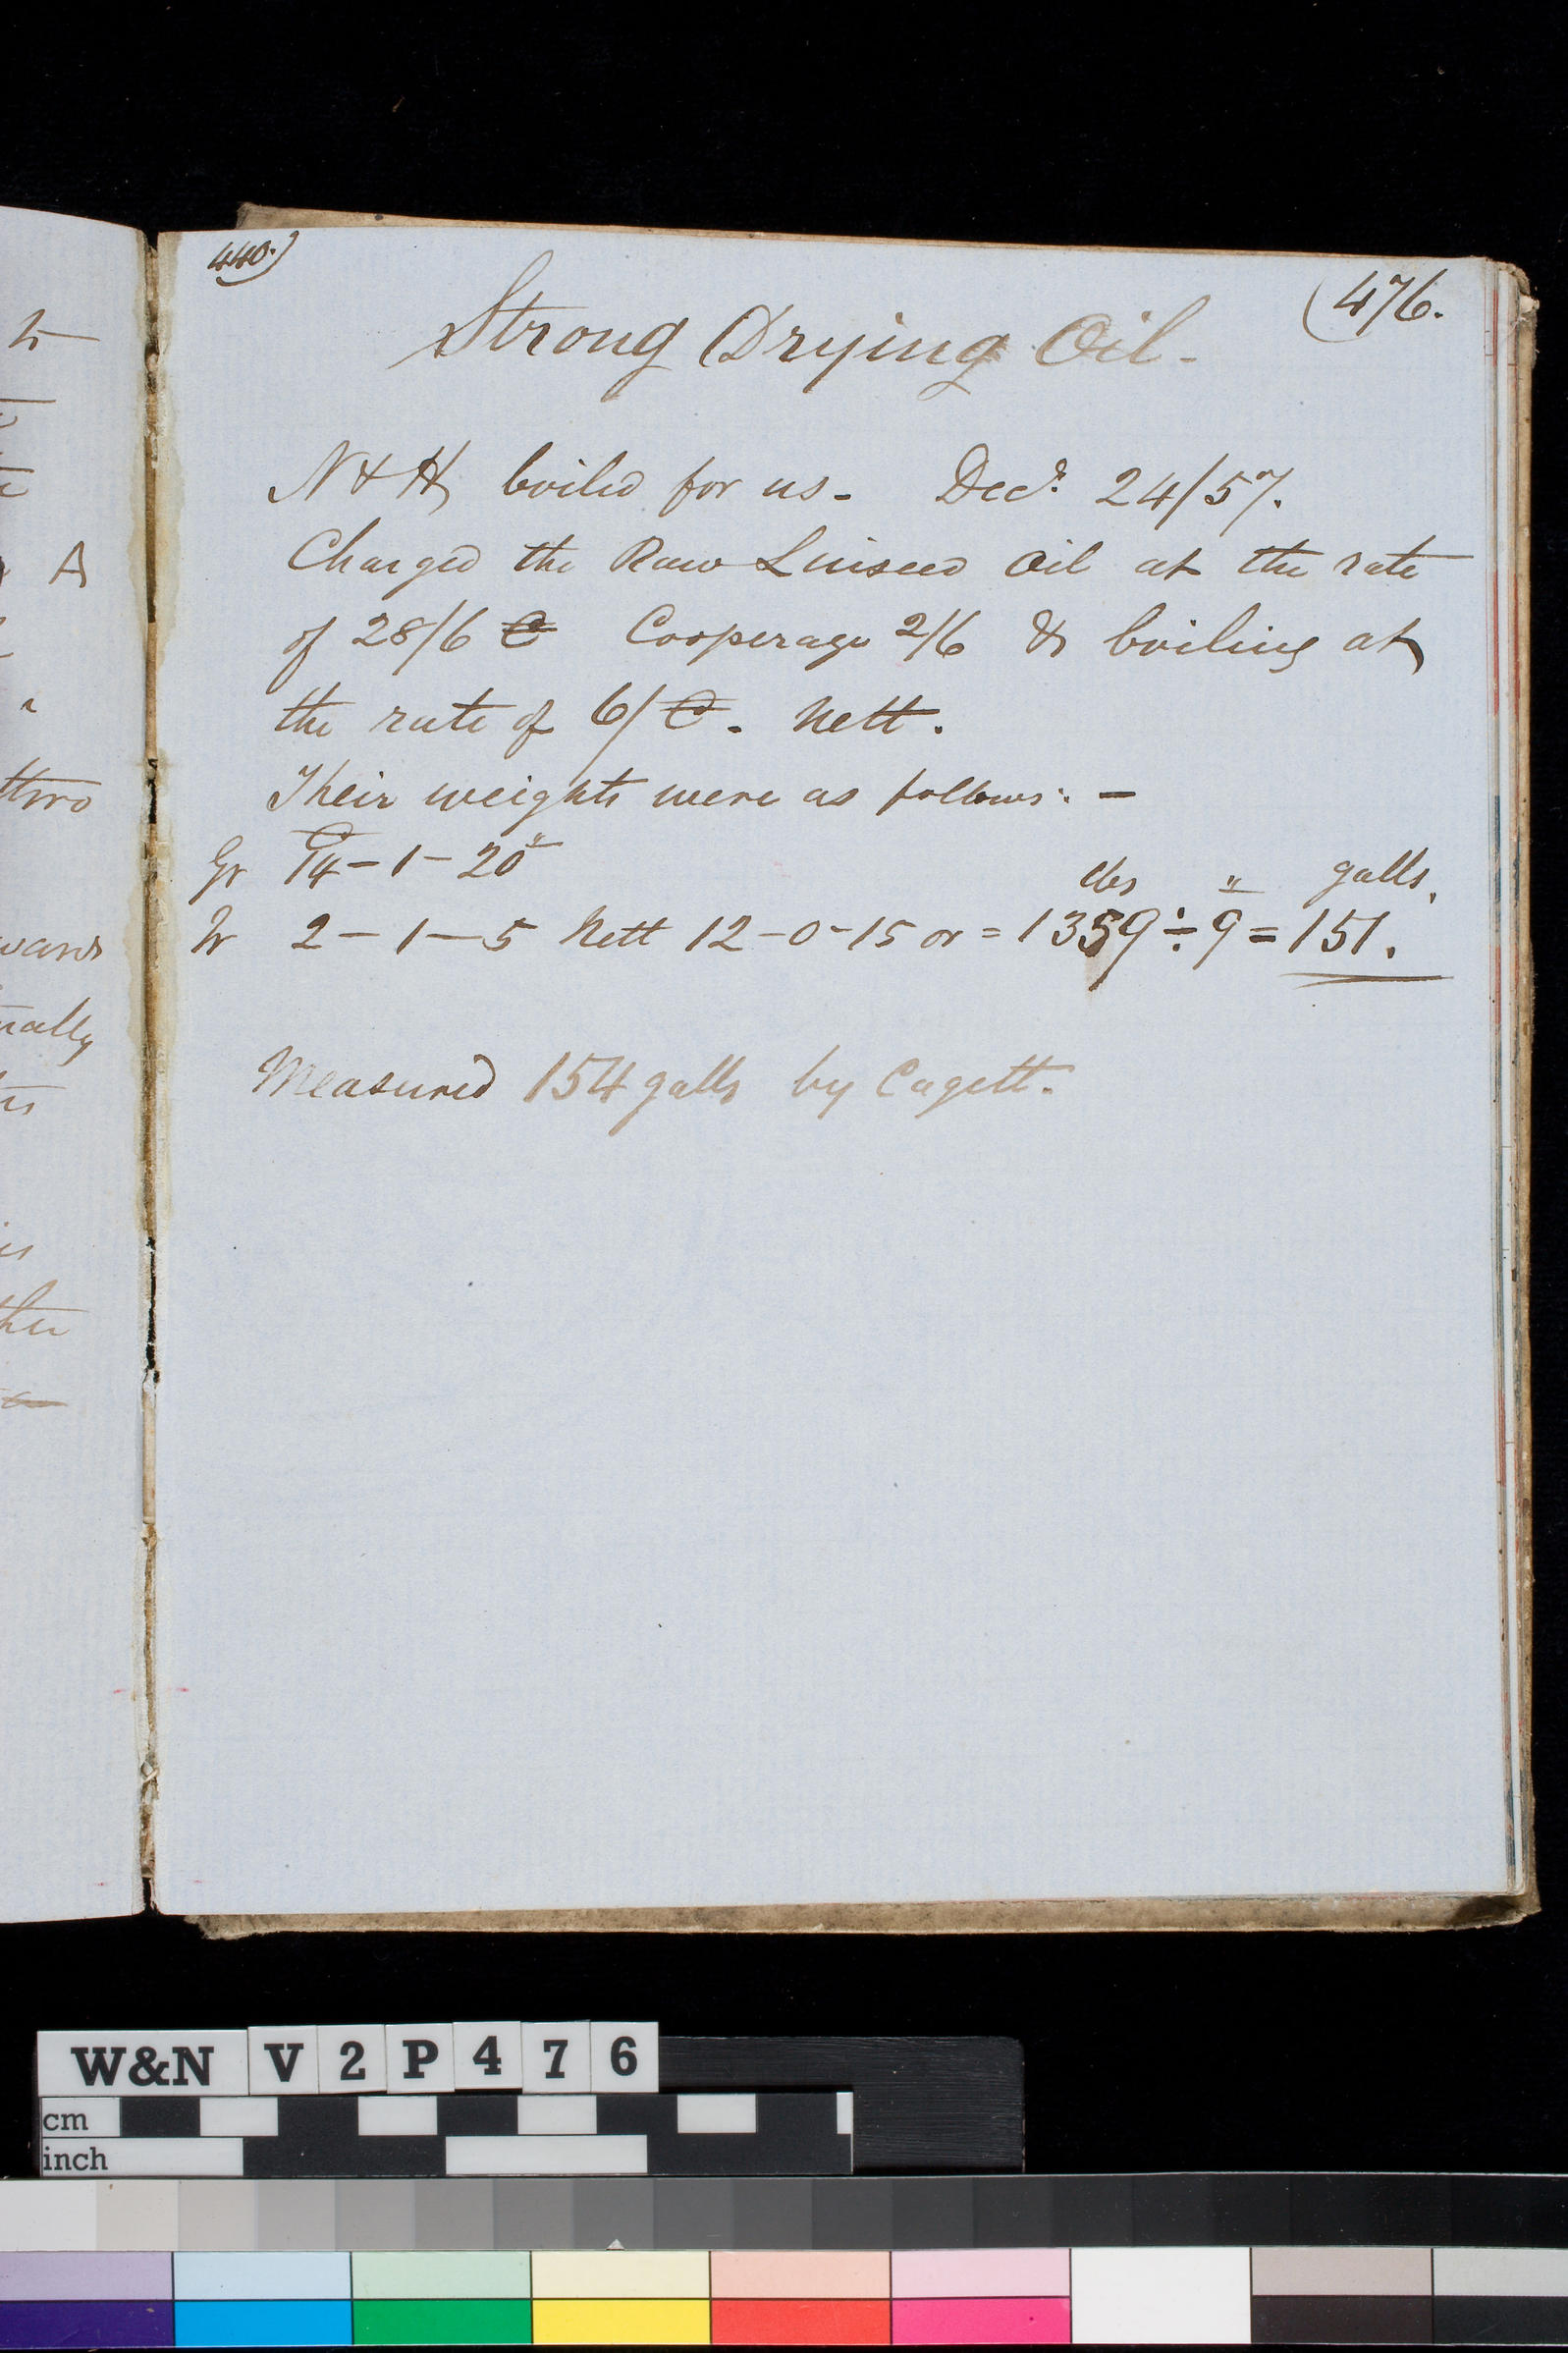 440.)
(476.
Strong Drying Oil.
N & H boiled for us. Decr. 24/57.
Charged the Raw Linseed Oil at the rate
of 28/6 C Cooperage 2/6 & boiling at
the rate of 6/ C. Nett.
Their weights were as follows: -
Gr 14 - 1 - 20
lbs " galls.
Tr 2 - 1 - 5 Nett 12 - 0 - 15 or = 1359 ÷ 9 = 151.
Measured 154 galls by Cagett.
two
ward
nally
W&N V 2 P 4 7 6
cm
inch